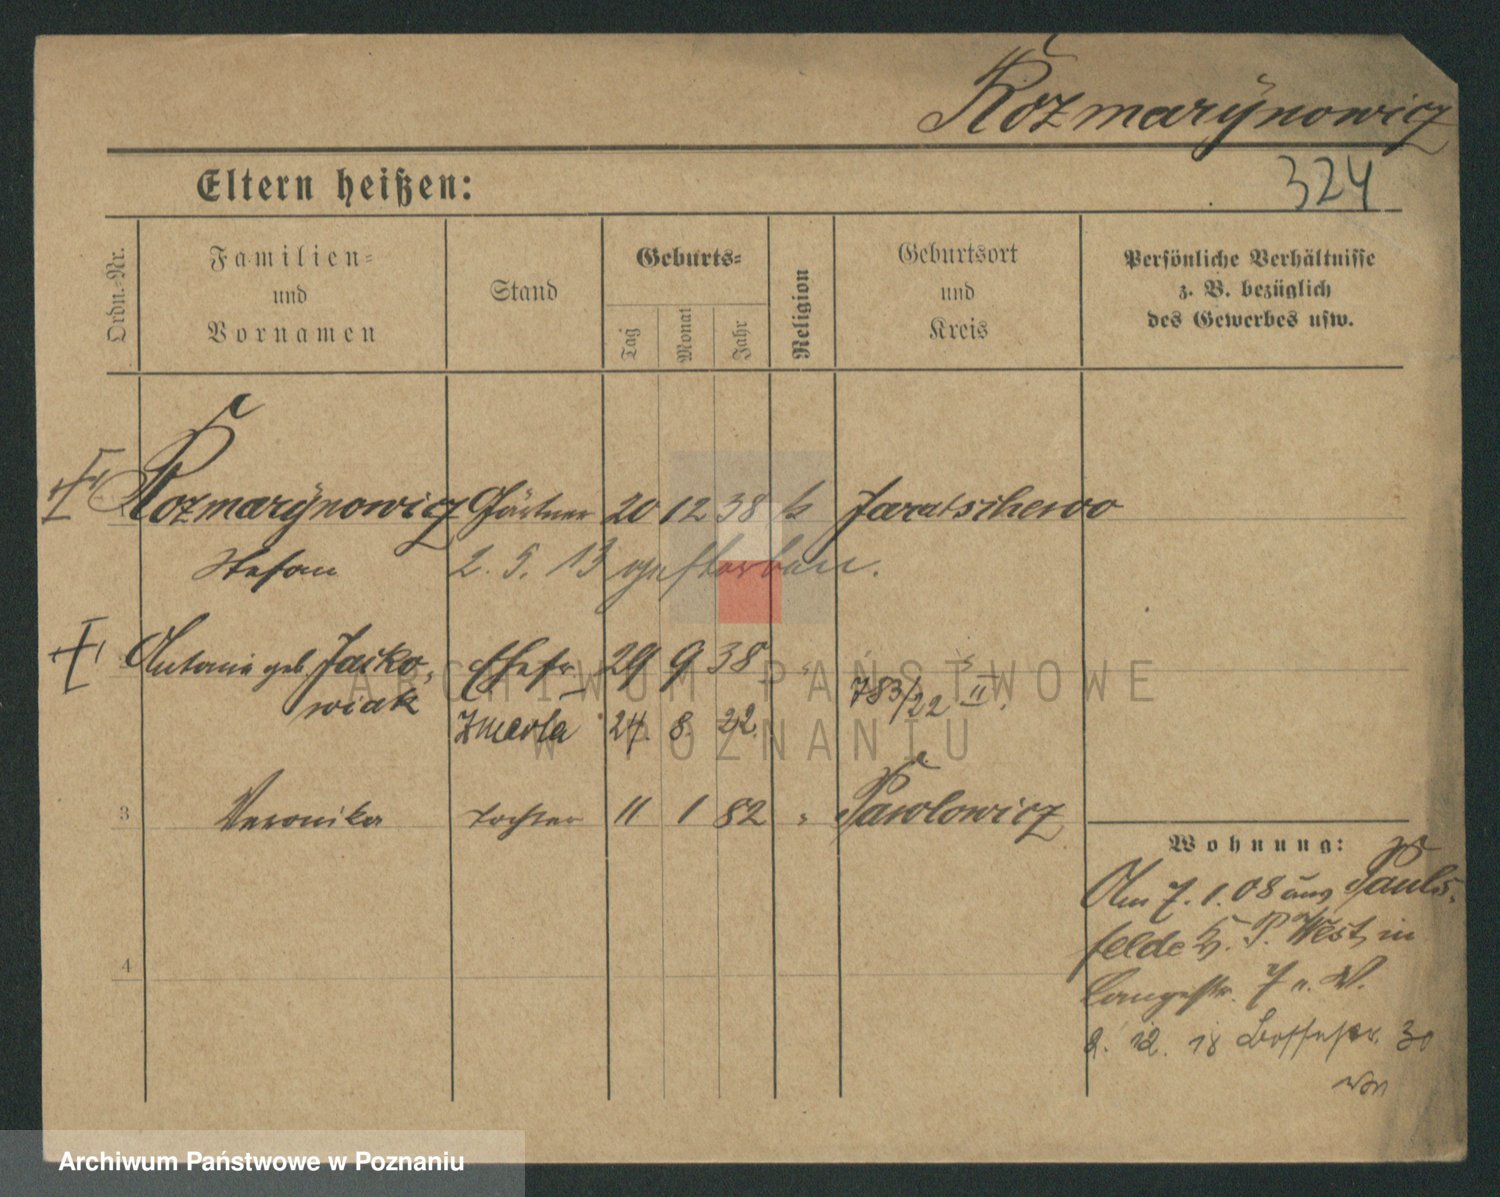 Rozmarÿnowicz
324
Eltern heißen:
Ordn.-Nr.
Familien-
und
Vornamen
Stand
Geburts-
Tag
Monat
Jahr
Religion
Geburtsort
und
Kreis
Persönliche Verhältnisse
z. B. bezüglich
des Gewerbes usw.
Rozmarÿnowicz Gärtner 20 12 38 k Jaratschewo
Stefan 2. 5. 13 gestorben.
Antonie geb. Jasko- Ehefr. 29 9 38 "
wiak
783/22 II.
zmarła 24. 8. 22.
3 Veronika Tochter 11 1 82 " Pawlowicz
Wohnung:
Am 7. 1. 08 aus Pauls-
felde K. P. West, in
Langestr. 7 n. W.
2. 12. 18 30
ARCHIWUM PAŃSTWOWE
W POZNANIU
4
Archiwum Państwowe w Poznaniu